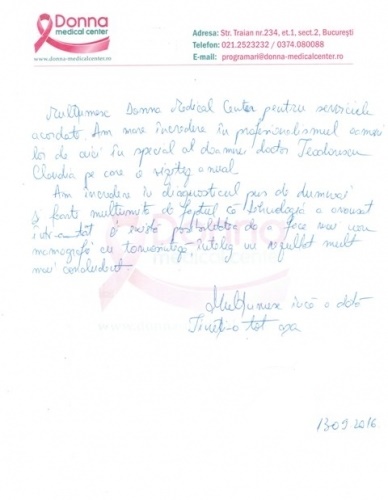 Donna
medical center
www.donna-medicalcenter.ro
Adresa: Str. Traian nr.234, et.1, sect.2, București
Telefon: 021.2523232 / 0374.080088
E-mail: programari@donna-medicalcenter.ro
Mulțumesc Donna Medical Center pentru serviciile
acordate. Am mare încredere în profesionalismul oameni
lor de aici în special al doamnei doctor Teodorescu
Claudia pe care o vizitez anual.
Am încredere în diagnosticul pus de dumneaei
și foarte mulțumită de faptul că tehnologia a avansat
într-atât că există posibilitatea de a face
mamografie cu tomosinteză rezultat mult
mai concludent
Donna
medical center
Mulțumesc încă o dată
Țineți-o tot așa
13.09.2016